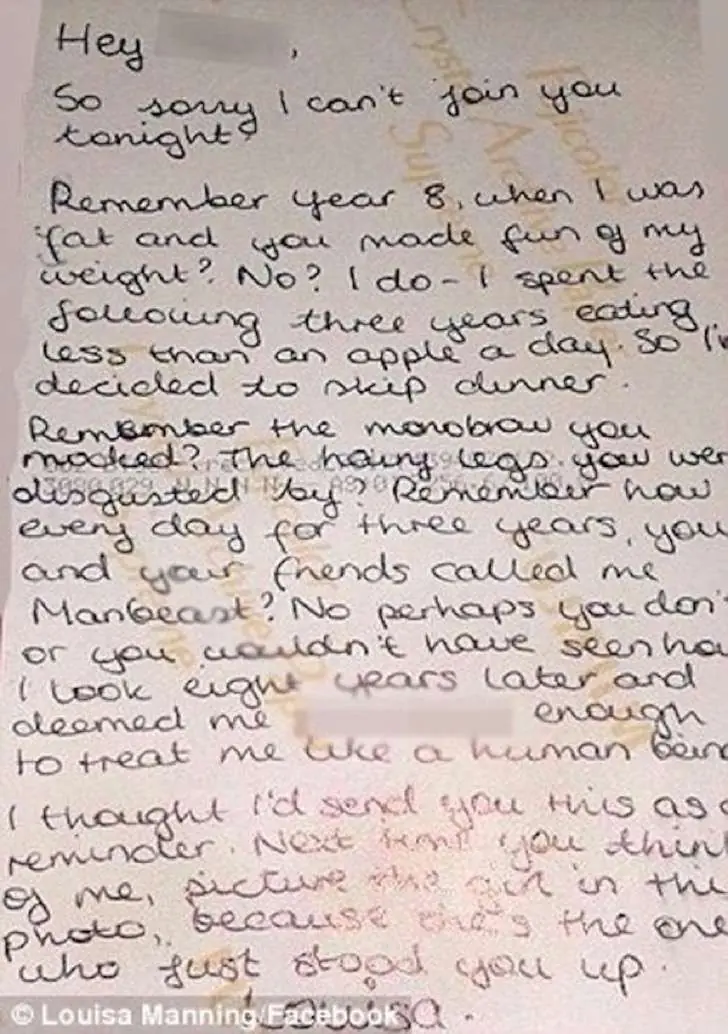 Hey ,
So sorry I can't join you
tonight?
Remember year 8, when I was
fat and you made fun of my
weight? No? I do - I spent the
following three years eating
less than an apple a day. So I'v
decided to skip dinner.
Remember the monobrow you
mocked? The hairy legs you wer
disgusted by? Remember how
every day for three years, you
and your friends called me
Manbeast? No perhaps you don't
or you wouldn't have seen how
I look eight years later and
deemed me enough
to treat me like a human being
I thought I'd send you this as
reminder. Next time you think
of me, picture the girl in this
photo, because she's the one
who just stood you up.
Louisa.
© Louisa Manning/Facebook